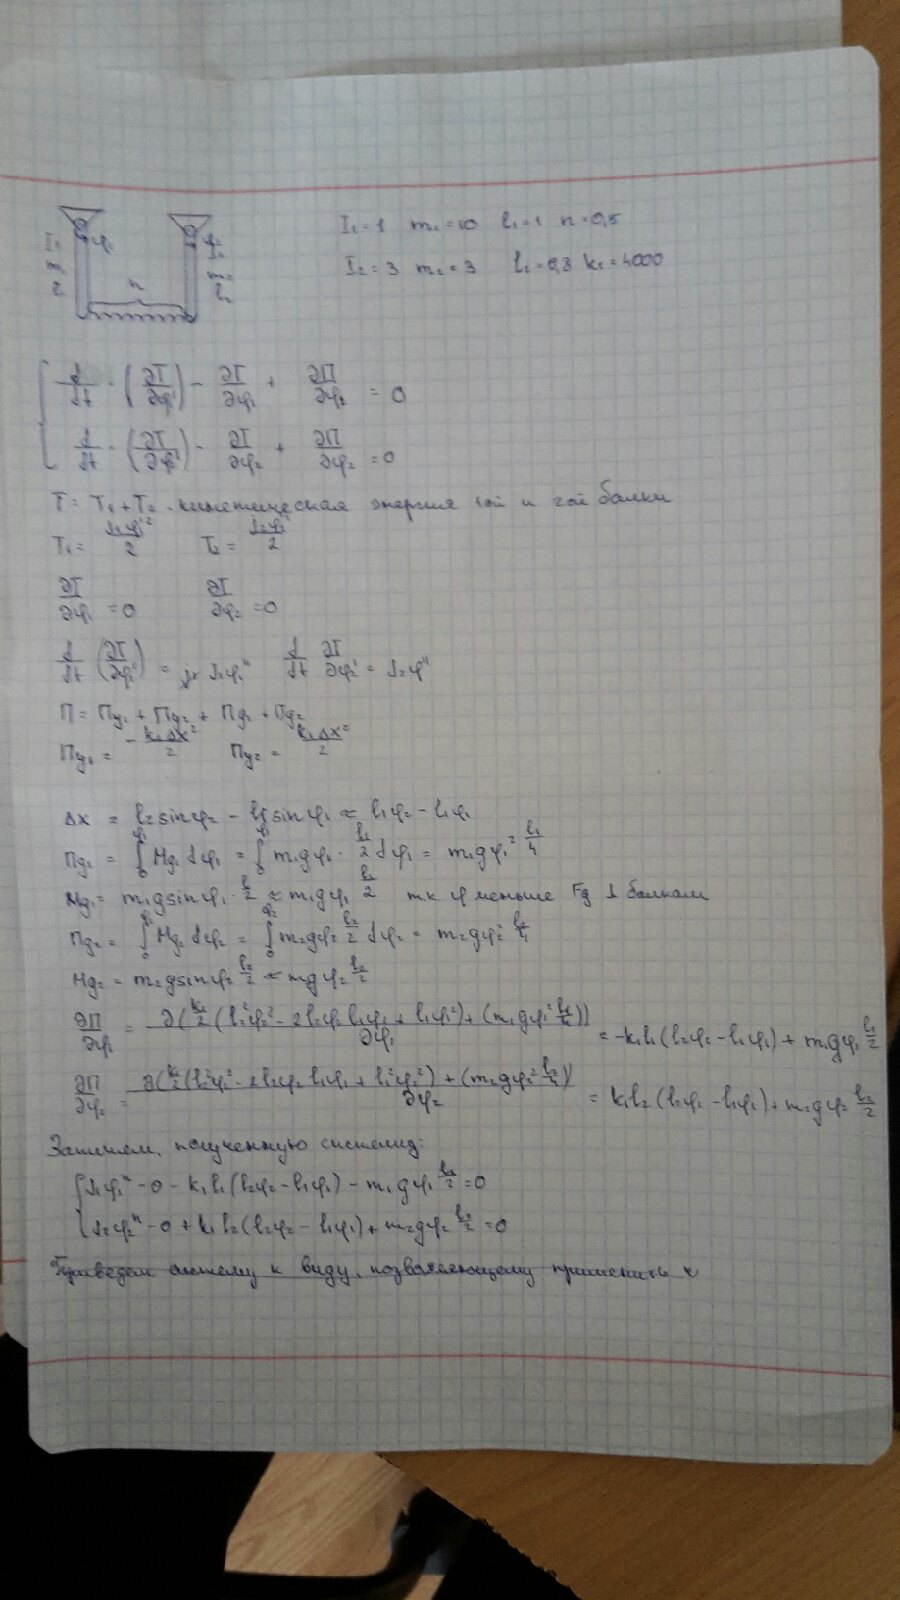 I₁ = 1 m₁ = 10 l₁ = 1 n = 0,5
I₂ = 3 m₂ = 3 l₂ = 0,3 k₁ = 4000
I₁ φ₁
m
n
m₂
l₂
d/dt · (∂T/∂φ₁') − ∂T/∂φ₁ + ∂П/∂φ₂ = 0
d/dt · (∂T/∂φ₂') − ∂T/∂φ₂ + ∂П/∂φ₂ = 0
T = T₁ + T₂ - кинетическая энергия 1ой и 2ой балки
T₁ = J₁φ₁'²/2 T₂ = J₂φ₂'²/2
∂T/∂φ₁ = 0 ∂T/∂φ₂ = 0
d/dt (∂T/∂φ₁') = J₁φ₁'' d/dt ∂T/∂φ₂' = J₂φ''
П = Пу₁ + Пу₂ + Пg₁ + Пg₂
Пу₁ = − k₁Δx²/2 Пу₂ = k₁Δx²/2
Δx = l₂sinφ₂ − l₁sinφ₁ ≈ l₁φ₂ − l₁φ₁
Пg₁ = ∫₀^φ₁ Mg₁ dφ₁ = ∫₀^φ₁ m₁gφ₁ · l₁/2 dφ₁ = m₁gφ₁² l₁/4
Mg₁ = m₁gsinφ₁ · l₁/2 ≈ m₁gφ₁ l₁/2 тк φ меньше Fg ⊥ балкам
Пg₂ = ∫₀^φ₂ Mg₂ dφ₂ = ∫₀^φ₂ m₂gφ₂ l₂/2 dφ₂ = m₂gφ₂² l₂/4
Mg₂ = m₂gsinφ₂ l₂/2 ≈ mgφ₂ l₂/2
∂П/∂φ₁ = ∂(k₁/2 (l₂²φ₂² − 2l₂φ₂l₁φ₁ + l₁φ₁²) + (m₁gφ₁² l₁/4))/∂φ₁ = −k₁l₁(l₂φ₂ − l₁φ₁) + m₁gφ₁ l₁/2
∂П/∂φ₂ = ∂(k₁/2 (l₂²φ₂² − 2l₂φ₂l₁φ₁ + l₁²φ₁²) + (m₂gφ₂² l₂/4))/∂φ₂ = k₁l₂(l₂φ₂ − l₁φ₁) + m₂gφ₂ l₂/2
Запишем, полученную систему:
J₁φ₁'' − 0 − k₁l₁(l₂φ₂ − l₁φ₁) − m₁gφ₁ l₁/2 = 0
J₂φ₂'' − 0 + k₁l₂(l₂φ₂ − l₁φ₁) + m₂gφ₂ l₂/2 = 0
Приведем систему к виду, позволяющему применить